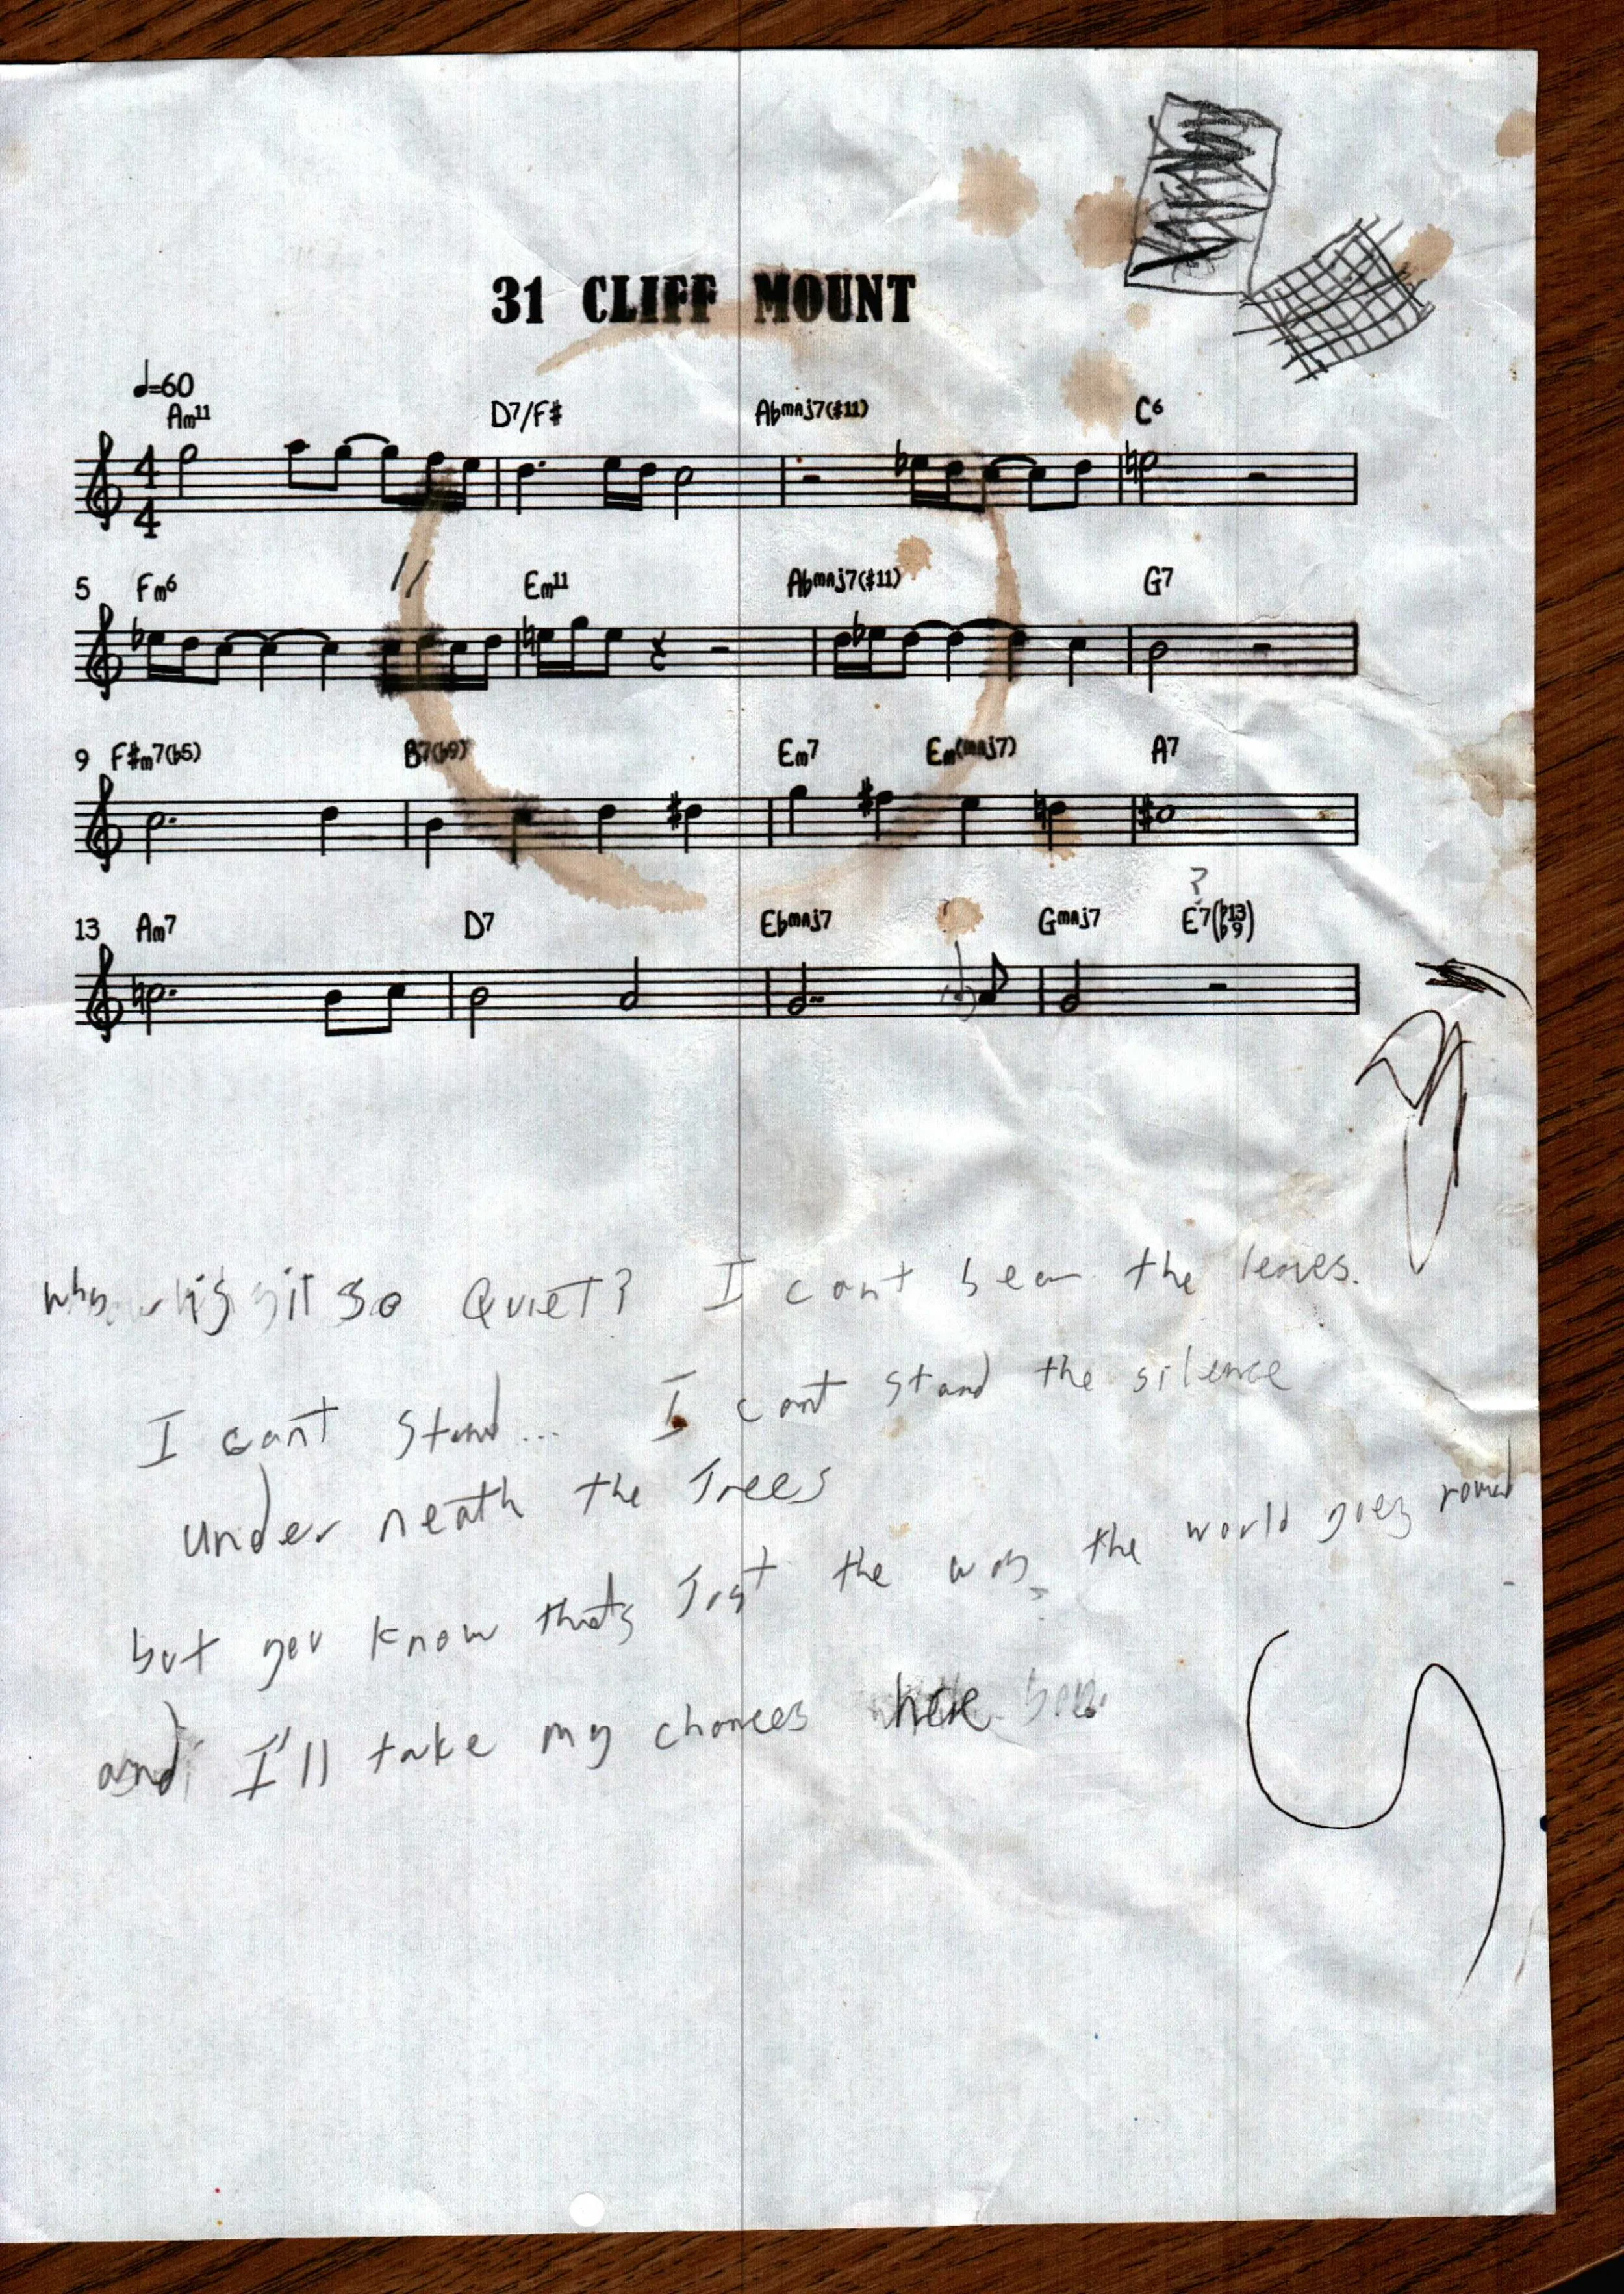 31 CLIFF MOUNT
♩=60
Am11 D7/F# Abmaj7(#11) C6
4
4
5 Fm6 Em11 Abmaj7(#11) G7
9 F#m7(b5) B7(b9) Em7 Em(maj7) A7
?
13 Am7 D7 Ebmaj7 Gmaj7 E7(b13 b9)
why is it so Quiet? I cant hear the leaves.
I cant stand... I cant stand the silence
under neath the Trees
but you know thats Just the way the world goes round
and I'll take my chances here